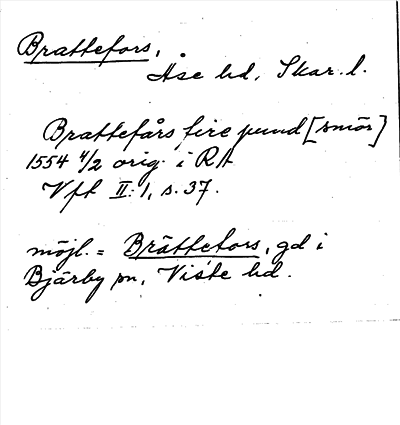 Brattefors,
Åse hd, Skar. l.
Brattefårs fire pund [smör]
1554 4/2 orig. i RA
Vft II:1, s. 37.
möjl. = Brättefors, gd i
Bjärby sn, Viste hd.